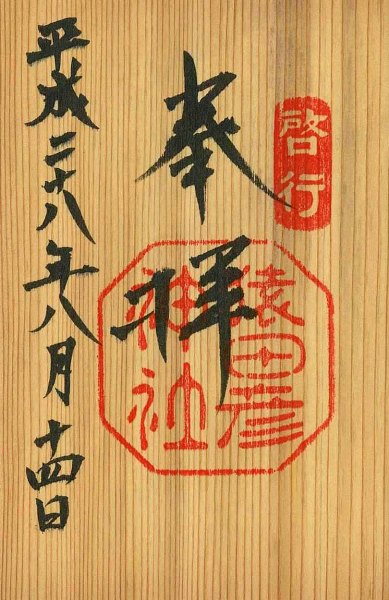 啓行
奉拝
猿田彦
神社
平成二十八年八月十四日